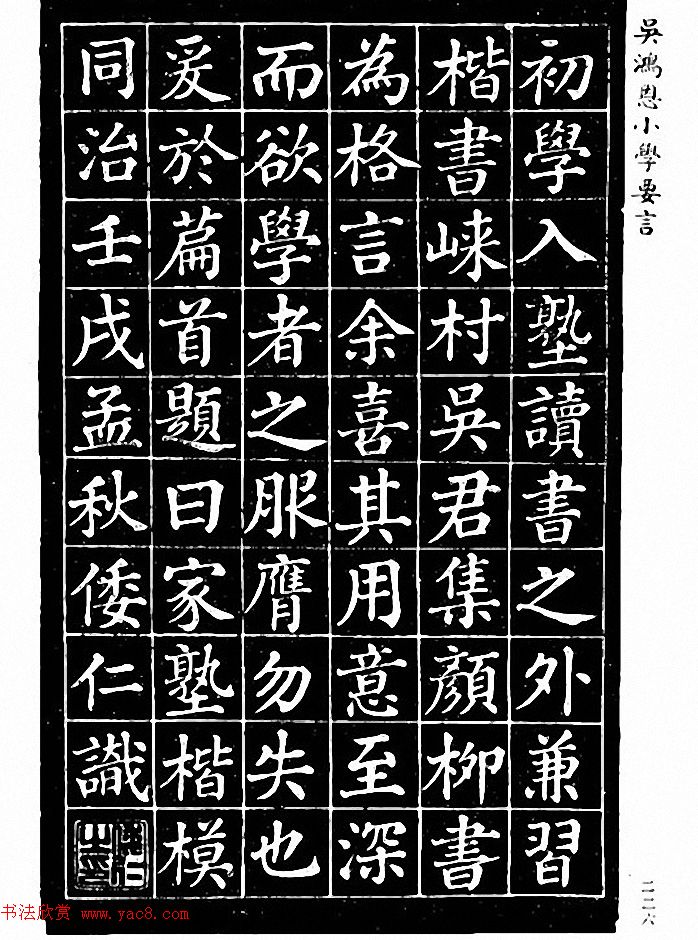 吳鴻恩小學要言
初學入塾讀書之外兼習
楷書崍村吳君集顏柳書
為格言余喜其用意至深
而欲學者之服膺勿失也
爰於篇首題曰家塾楷模
同治壬戌孟秋倭仁識
倭仁之印
二二六
书法欣赏 www.yac8.com